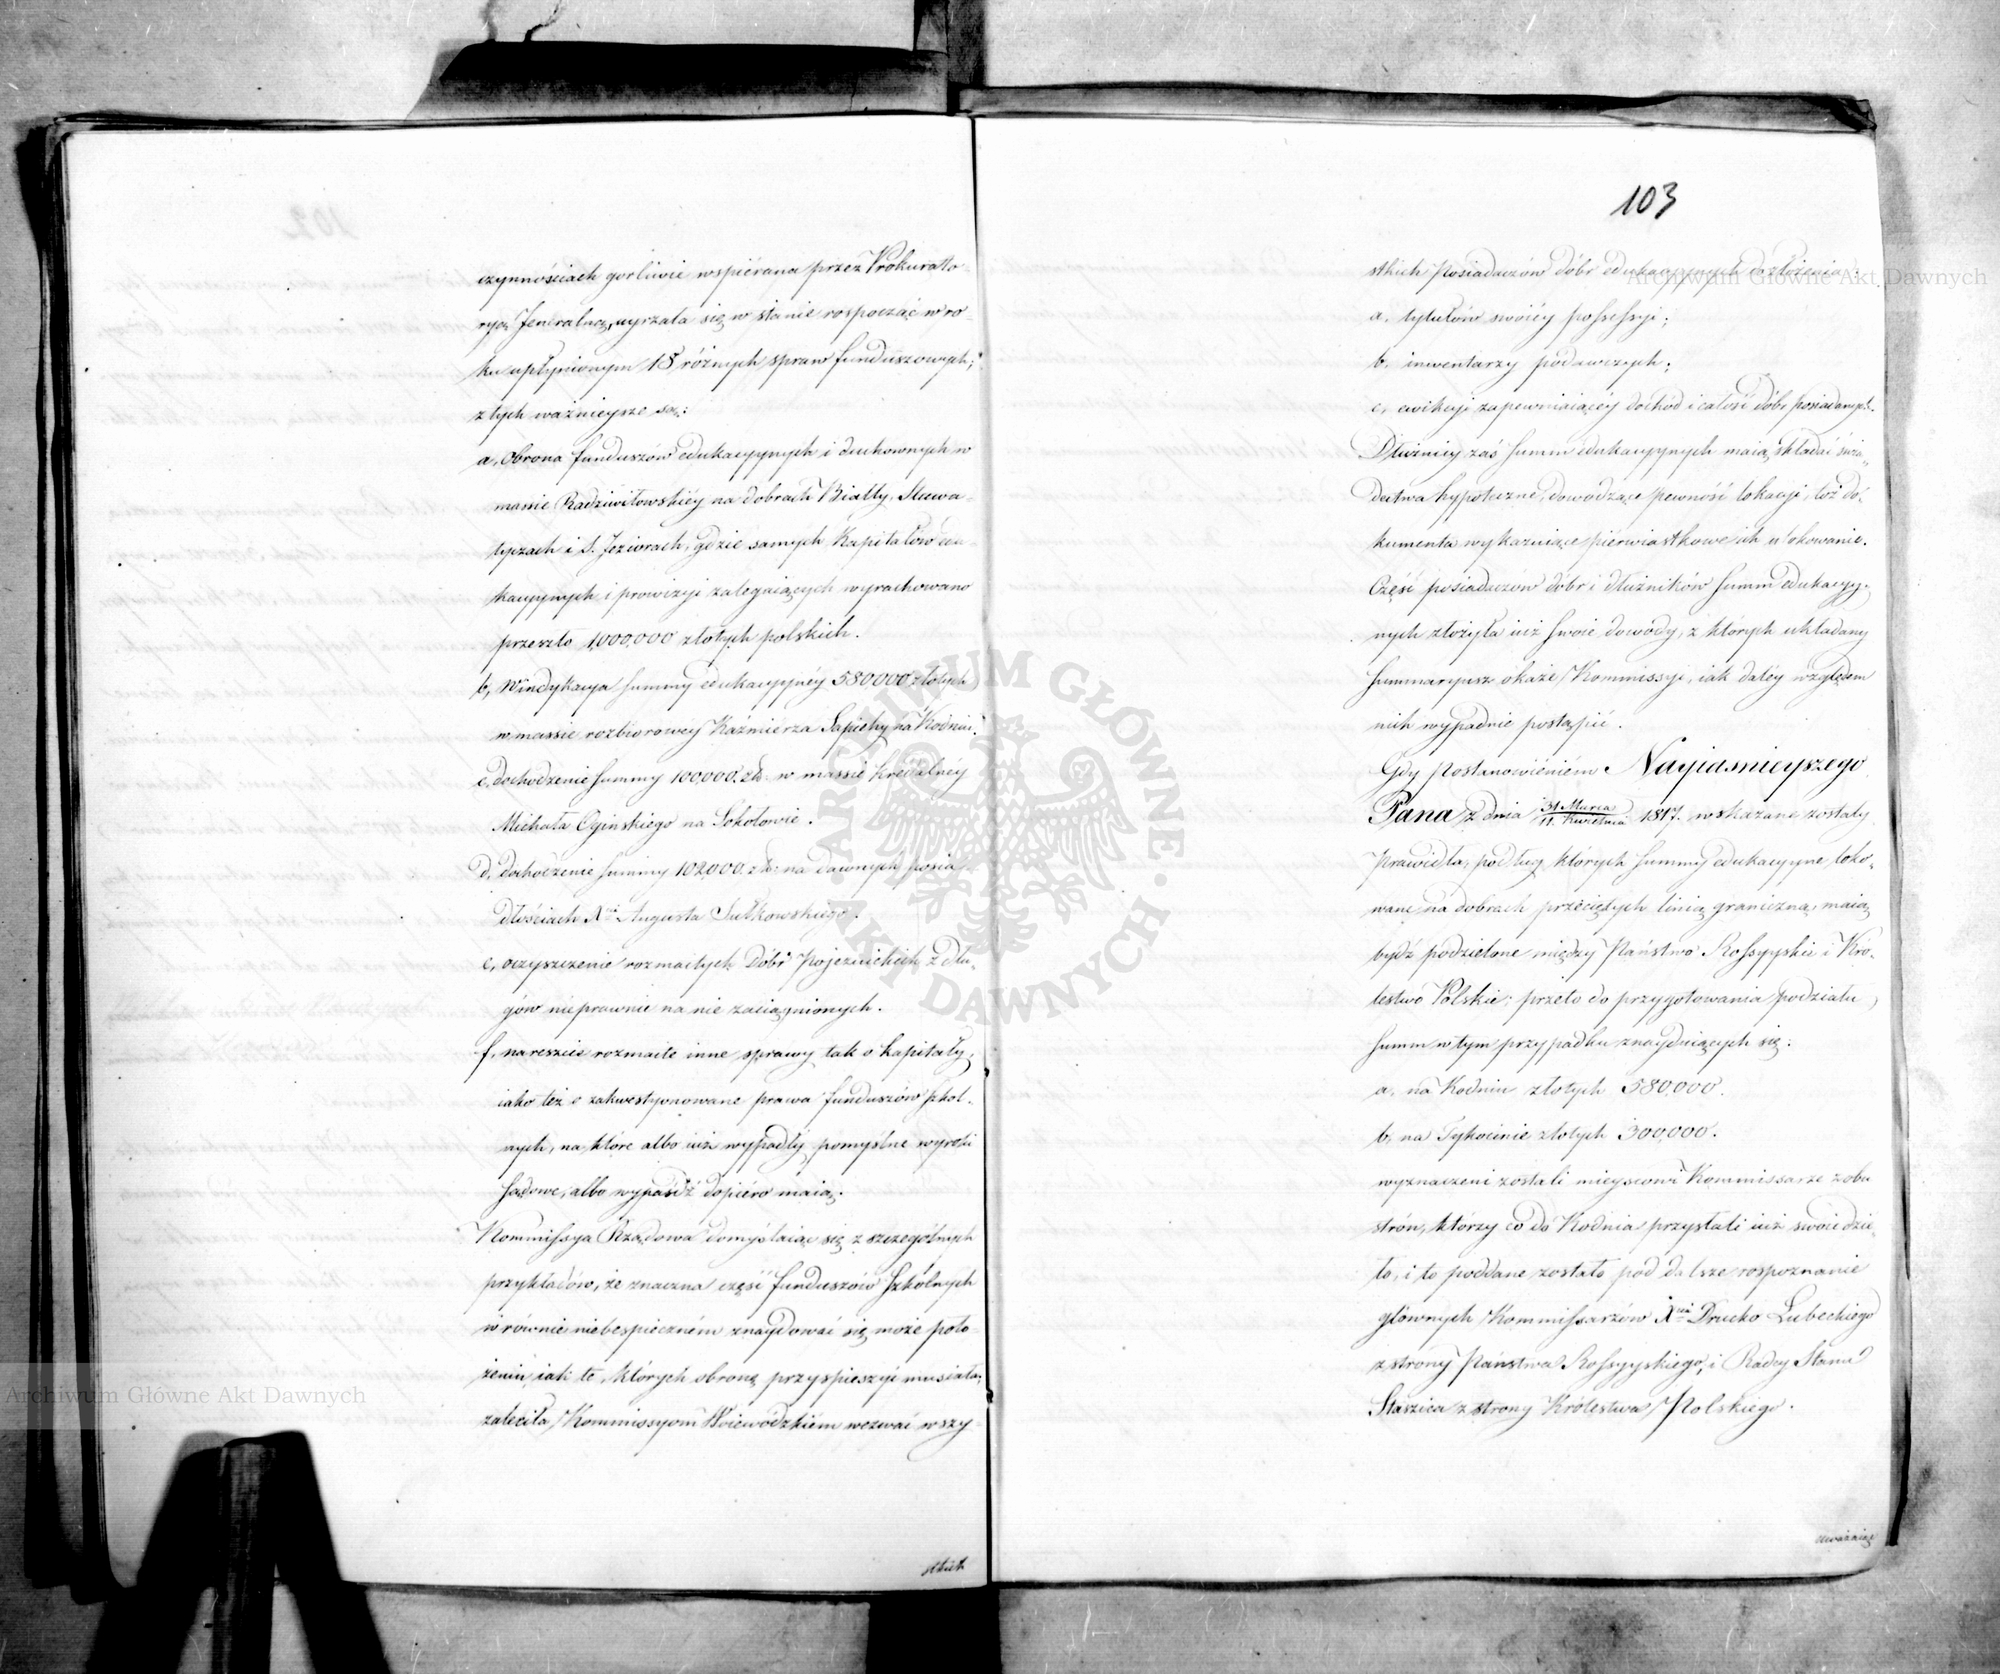 czynnościach gorliwie wspiérana przez Prokurato-
ryą Jeneralną, uyrzała się w stanie rospocząć w ro-
ku upłynionym 15 różnych spraw funduszowych;
z tych ważnieysze są:
a, Obrona funduszów edukacyynych i duchownych w
massie Radziwiłowskiéy na dobrach Biały, Sława-
tyczach i S. Jeziorach, gdzie samych Kapitałów edu-
kacyynych i prowizyi zalegaiących wyrachowano
przeszło 1,000,000 złotych polskich.
b, Windykacya summy edukacyynéy 580000 złotych
w massie rozbiorowéy Kaźmierza Sapiehy na Kodniu.
c, dochodzenie summy 100,000. zł: w massie kredalnéy
Michała Oginskiego na Sokołowie.
d, dochodzenie summy 102000. zł: na dawnych posia-
dłościach Xcia Augusta Sułkowskiego.
e, oczyszczenie rozmaitych Dóbr Pojezuickich z dłu-
gów nieprawnie na nie zaciągnionych.
f, nareszcie rozmaite inne sprawy tak o kapitały,
iako też o zakwestyonowane prawa funduszów szkol-
nych, na które albo iuż wypadły pomyślne wyroki
sądowe, albo wypaśdź dopiéro maią.
Kommissya Rządowa domyślaiąc się z szczególnych
przykładów, że znaczna część funduszów Szkólnych
w równie niebespieczném znaydować się może poło-
żeniu, iak te, których obronę przyspieszyć musiała;
zaleciła Kommissyom Woiewódzkiém wezwać wszy-
stkich
103
stkich Posiadaczów dóbr edukacyynych do złożenia:
a, tytułów swoiéy possessyi;
b, inwentarzy podawczych;
c, ewikcyi zapewniaiącéy dochód i całość dóbr posiadanych.
Dłużnicy zaś summ edukacyynych maią składać świa-
dectwa hypoteczne, dowodzące pewność lokacyi, toż do-
kumenta wykazuiące pierwiastkowe ich ulokowanie.
Część posiadaczow dóbr i dłużników summ edukacyy-
nych złożyła iuż swoie dowody, z których układany
summaryusz okaże Kommissyi, iak daléy względem
nich wypadnie postąpić.
Gdy Postanowiéniém Nayiasnieyszego
Pana z dnia 31 Marca / 11. Kwietnia 1817. wskazane zostały
Prawidła, podług których summy edukacyyne loko-
wane na dobrach przeciętych linią graniczną, maią
bydź podzielone między Państwo Rossyyskie i Kró-
lestwo Polskie; przeto do przygotowania podziału
summ w tym przypadku znayduiących się:
a, na Kodniu złotych 580,000.
b, na Tykocinie złotych 300,000.
wyznaczeni zostali mieyscowi Kommissarze z obu
strón, którzy co do Kodnia przysłali iuż swoie dzie-
ło, i to poddane zostało pod dalsze rospoznanie
głównych Kommissarzów Xcia Drucko Lubeckiego
z strony Państwa Rossyyskiego, i Radcy Stanu
Staszica z strony Królestwa Polskiego.
Uważaiąc
Archiwum Główne Akt Dawnych
Archiwum Główne Akt Dawnych
ARCHIWUM GŁÓWNE AKT DAWNYCH
102